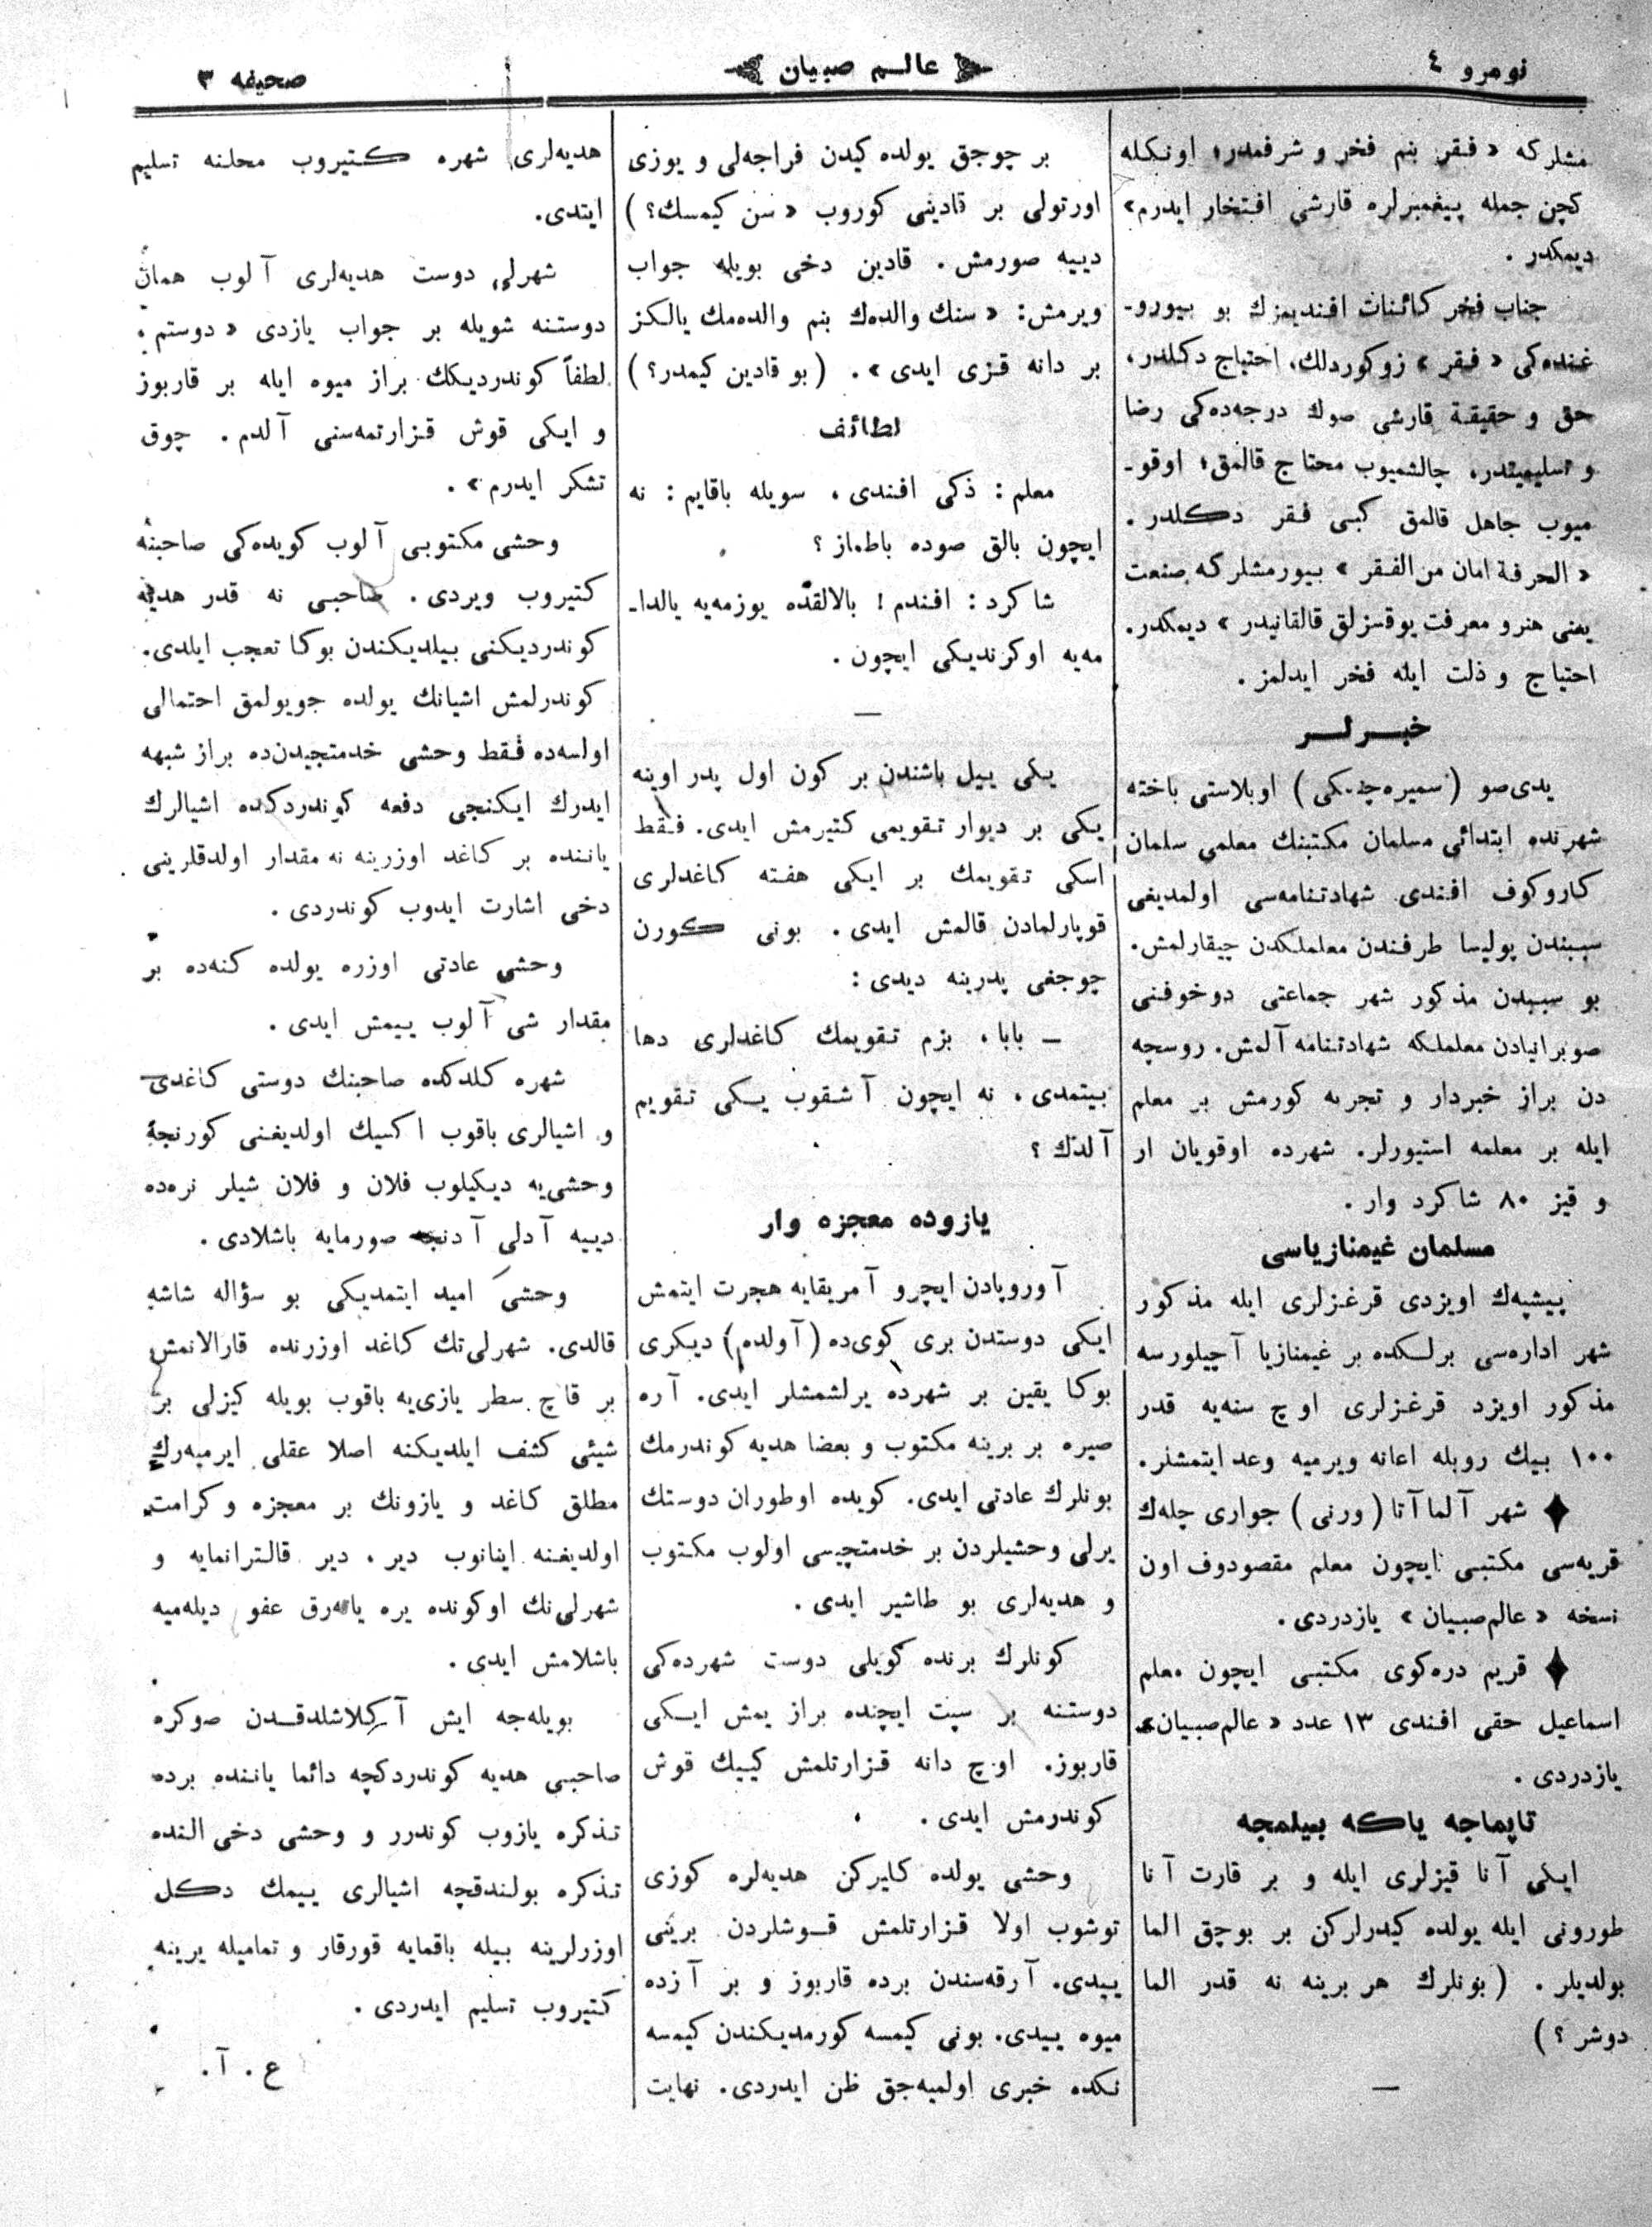 نومرو ٤
عالم صبيان
صحيفه ٣
مشلركه « فقر بنم فخر و شرفمدر، اونكله
كچن جمله پيغمبرلره قارشى افتخار ايدرم»
ديمكدر .
جناب فخر كائنات افنديمزك بو بيورو-
غنده‌كى « فقر » زوكوردلك، احتياج دكلدر،
حق و حقيقة قارشى صوك درجه‌ده‌كى رضا
و تسليميتدر، چالشميوب محتاج قالمق، اوقو-
ميوب جاهل قالمق كبى فقر دكلدر .
« الحرفة امان من الفقر » بيورمشلركه صنعت
يعنى هنر و معرفت يوقسزلق قالقانيدر » ديمكدر.
احتياج و ذلت ايله فخر ايدلمز .
خبرلر
يدى‌صو (سميره‌چنسكى) اوبلاستى باخته
شهرنده ابتدائى مسلمان مكتبنك معلمى سلمان
كاروكوف افندى شهادتنامه‌سى اولمديغى
سببندن پوليسا طرفندن معلملكدن چيقارلمش.
بو سببدن مذكور شهر جماعتى دوخوفنى
صوبرانيادن معلملكه شهادتنامه آلمش. روسچه
دن براز خبردار و تجربه كورمش بر معلم
ايله بر معلمه استيورلر. شهرده اوقويان ار
و قيز ٨٠ شاكرد وار .
مسلمان غيمنازياسى
پيشپه‌ك اويزدى قرغزلرى ايله مذكور
شهر اداره‌سى برلكده بر غيمنازيا آچيلورسه
مذكور اويزد قرغزلرى اوچ سنه‌يه قدر
١٠٠ بيك روبله اعانه ويرميه وعد ايتمشلر.
شهر آلما آتا (ورنى) جوارى چله‌ك
قريه‌سى مكتبى ايچون معلم مقصودوف اون
نسخه « عالم صبيان » يازدردى .
قريم دره‌كوى مكتبى ايچون معلم
اسماعيل حقى افندى ١٣ عدد « عالم صبيان»
يازدردى .
تاپماجه ياكه بيلمجه
ايكى آنا قيزلرى ايله و بر قارت آنا
طورونى ايله يولده كيدرلركن بر بوچق الما
بولديلر . (بونلرك هر برينه نه قدر الما
دوشر ؟)
بر چوجق يولده كيدن فراجه‌لى و يوزى
اورتولى بر قادينى كوروب « سن كيمسك؟)
دييه صورمش . قادين دخى بويله جواب
ويرمش: « سنك والده‌ك بنم والده‌مك يالكز
بر دانه قزى ايدى ». (بو قادين كيمدر؟)
لطائف
معلم : ذكى افندى ، سويله باقايم : نه
ايچون بالق صوده باطماز ؟
شاكرد : افندم ! بالالقده يوزمه‌يه يالدا-
مه‌يه اوكرنديكى ايچون .
يكى ييل باشندن بر كون اول پدر اوينه
يكى بر ديوار تقويمى كتيرمش ايدى. فقط
اسكى تقويمك بر ايكى هفته كاغدلرى
قوپارلمادن قالمش ايدى . بونى كورن
چوجغى پدرينه ديدى :
— بابا، بزم تقويمك كاغدلرى دها
بيتمدى، نه ايچون آشقوب يكى تقويم
آلدك ؟
يازوده معجزه وار
آوروپادن ايچرو آمريقايه هجرت ايتمش
ايكى دوستدن برى كوى‌ده (آولده) ديكرى
بوكا يقين بر شهرده يرلشمشلر ايدى. آره
صيره بر برينه مكتوب و بعضا هديه كوندرمك
بونلرك عادتى ايدى. كويده اوطوران دوستك
يرلى وحشيلردن بر خدمتچيسى اولوب مكتوب
و هديه‌لرى بو طاشير ايدى .
كونلرك برنده كويلى دوست شهرده‌كى
دوستنه بر سپت ايچنده براز يمش ايكى
قاربوز. اوچ دانه قزارتلمش كييك قوش
كوندرمش ايدى .
وحشى يولده كليركن هديه‌لره كوزى
توشوب اولا قزارتلمش قوشلردن برينى
ييدى. آرقه‌سندن برده قاربوز و بر آزده
ميوه ييدى. بونى كيمسه كورمديكندن كيمسه
نكده خبرى اولميه‌جق ظن ايدردى. نهايت
هديه‌لرى شهره كتيروب محلنه تسليم
ايتدى.
شهرلى دوست هديه‌لرى آلوب همان
دوستنه شويله بر جواب يازدى « دوستم ،
لطفاً كوندرديكك براز ميوه ايله بر قاربوز
و ايكى قوش قزارتمه‌سنى آلدم . چوق
تشكر ايدرم » .
وحشى مكتوبى آلوب كويده‌كى صاحبنه
كتيروب ويردى . صاحبى نه قدر هديه
كوندرديكنى بيلديكندن بوكا تعجب ايلدى.
كوندرلمش اشيانك يولده جويولمق احتمالى
اولسه‌ده فقط وحشى خدمتجيدن‌ده براز شبهه
ايدرك ايكنجى دفعه كوندردكده اشيالرك
ياننده بر كاغد اوزرينه نه مقدار اولدقلرينى
دخى اشارت ايدوب كوندردى .
وحشى عادتى اوزره يولده كنه‌ده بر
مقدار شى آلوب ييمش ايدى .
شهره كلدكده صاحبنك دوستى كاغدى
و اشيالرى باقوب اكسيك اولديغنى كورنجه
وحشى‌يه ديكيلوب فلان و فلان شيلر نره‌ده
دييه آدلى آدنجه صورمايه باشلادى .
وحشى اميد ايتمديكى بو سؤاله شاشه
قالدى. شهرلى‌نك كاغد اوزرنده قارالانمش
بر قاچ سطر يازى‌يه باقوب بويله كيزلى بر
شيئى كشف ايلديكنه اصلا عقلى ايرميه‌رك
مطلق كاغد و يازونك بر معجزه و كرامت
اولديغنه اينانوب دير ، دير قالترانمايه و
شهرلى‌نك اوكونده يره ياتەرق عفو ديله‌ميه
باشلامش ايدى .
بويله‌جه ايش آكلاشلدقدن صوكره
صاحبى هديه كوندردكچه دائما ياننده برده
تذكره يازوب كوندرر و وحشى دخى النده
تذكره بولندقچه اشيالرى ييمك دكل
اوزرلرينه بيله باقمايه قورقار و تماميله يرينه
كتيروب تسليم ايدردى .
ع . آ .